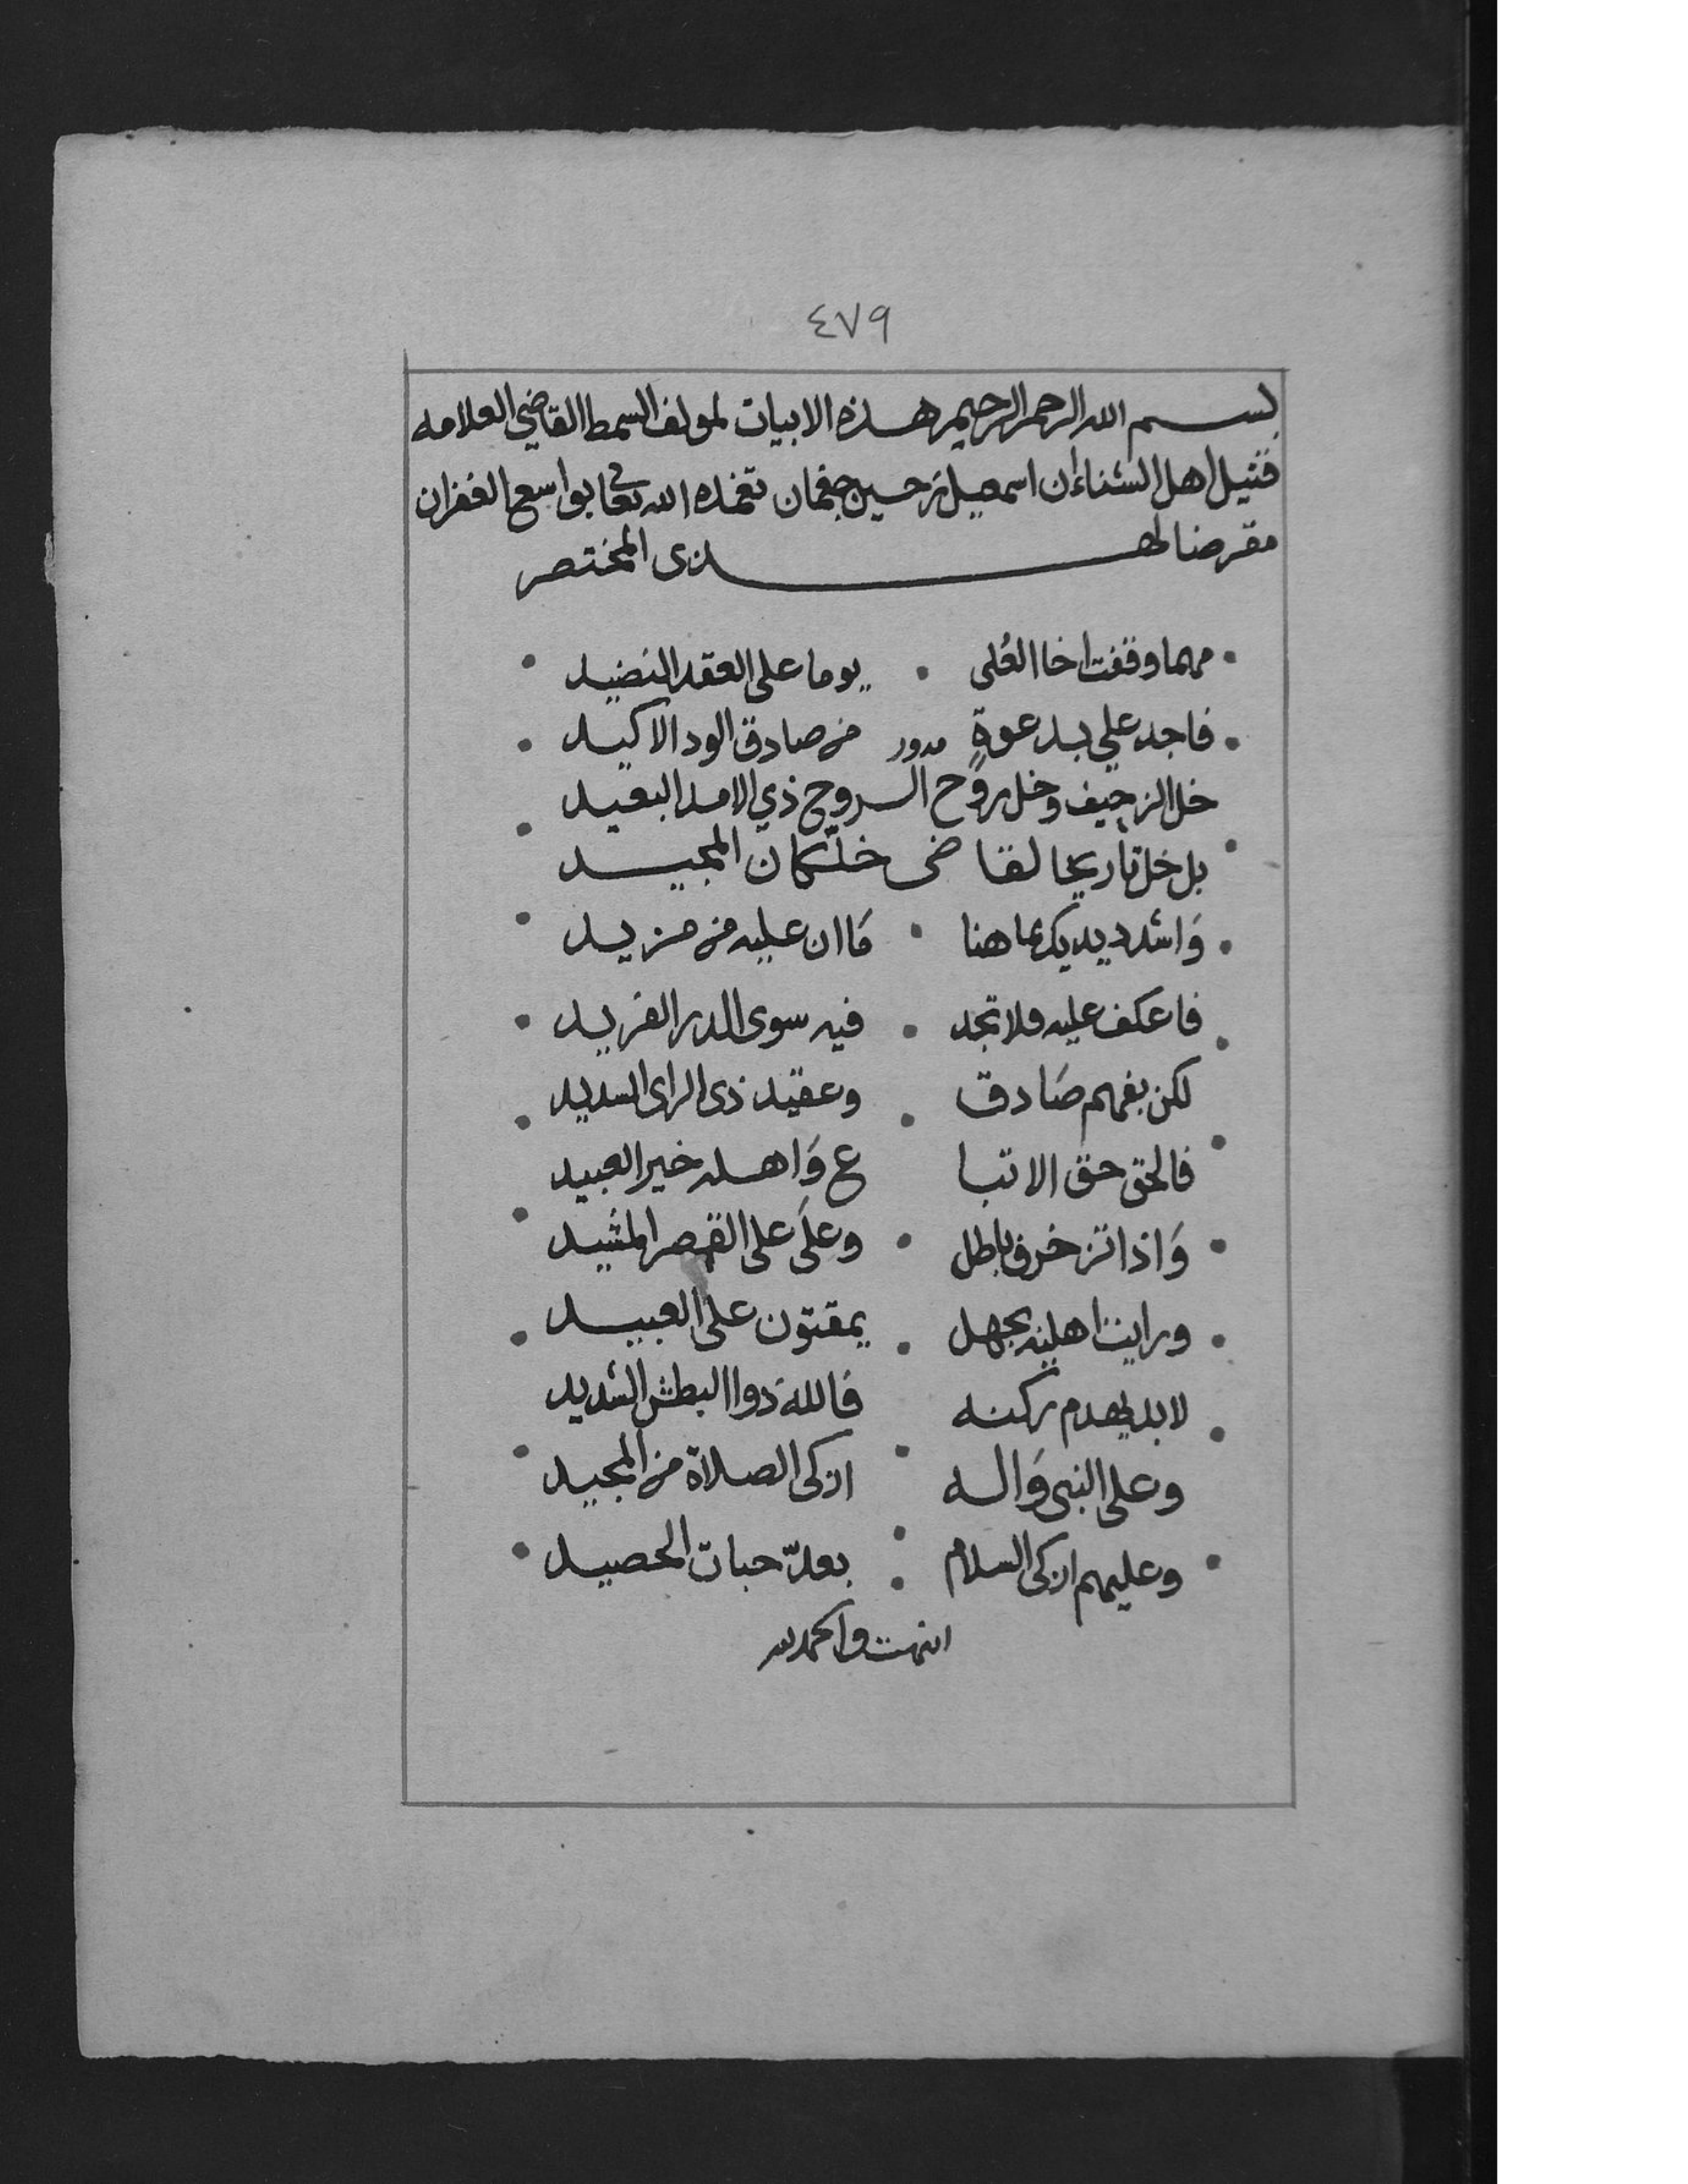 ٤٧٩
بسم الله الرحمن الرحيم هذه الابيات لمولف السمط القاضي العلامه
قتيل اهل الشنائن اسمعيل بن حسين جغمان تغمده الله تعالى بواسع الغفران
مقرضا لهذى المختصر
مهما وقفت اخا العُلى • يوما على العقد النضيد
فاجد علي بدعوةٍ مدور من صادق الود الاكيد
خل الزحيف وخل روح الروح ذي الامد البعيد
بل خل تاريخا لقاضى خلكان المجيد
وَاشدد يديك بما هنا • مَا ان عليه من مزيد
فاعكف عليه فلا تجد • فيه سوى الدر الفريد
لكن بفهم صَادق • وعقيد ذى الراى السديد
فالحق حق الاتبا ع وَاهله خير العبيد
وَاذا تزخرف باطل • وعلَى على القصر المشيد
ورايت اهليه بجهل • يمقتون على العبيد
لابد يهدم ركنه فالله ذوا البطش الشديد
وعلى النبى وَاله • ازكى الصلاة من المجيد
وعليهم ازكى السلام • بعدّ حبات الحصيد
انتهت والحمد لله